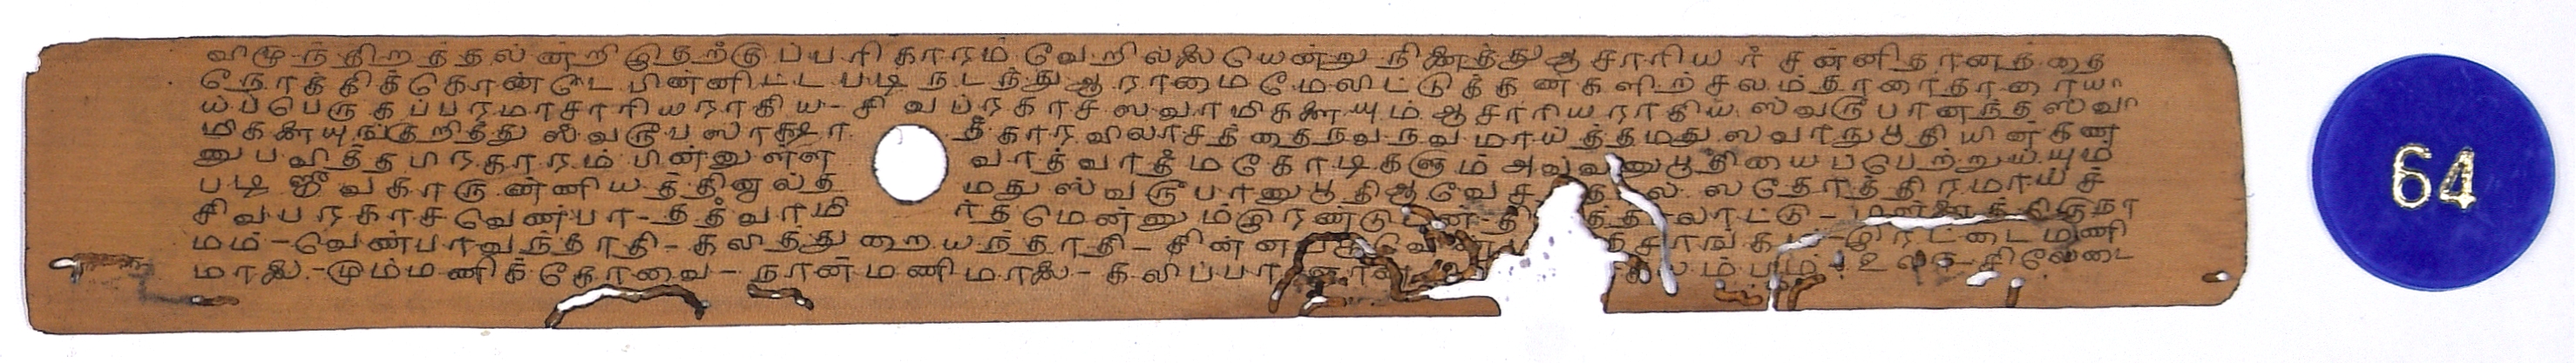 விமூந்திறத்தல்ன்றி இதற்குப்பரிகாரம் வேறில்லையென்று நினைத்து ஆசாரியர் சன்னிதானத்தை
நோக்கிக்கொண்டே பின்னிட்டபடி நடந்து ஆராமைமேலிட்டுக்கண்களிற்சலம்தாரைதாரையா
ய்ப்பெருகப்பரமாசாரியராகிய-சிவப்ரகாச ஸவாமிகளையும் ஆசாரியராகிய ஸ்வரூபானந்த ஸ்வா
மிகளையுங்குறித்து ஸ்வரூப ஸாக்ஷா த்காரவிலாசத்தைநவநவமாய்த்தமது ஸவாநுபூதியின்கண்
னுபவித்தபிரகாரம் பின்னுள்ள வாத்வாத்மகோடிகளும் அவ்வனுபூதியைப்பெற்றுய்யும்
படி ஜீவகாருண்ணியத்தினால்த் மது ஸ்வரூபானுபூதி ஆவேச லதோத்திரமாய்ச்
சிவபரகாசவெண்பா-தத்வாமி ர்தமென்னும் இரண்டு லாட்டு-
மம்-வெண்பாவந்தாதி-கலித்துறையந்தாதி-சின்ன தசாங்கம்-இரட்டைமணி
மாலை-மும்மணிக்கோவை-நான்மணிமாலை-கலிப்பா சிலேடை
64